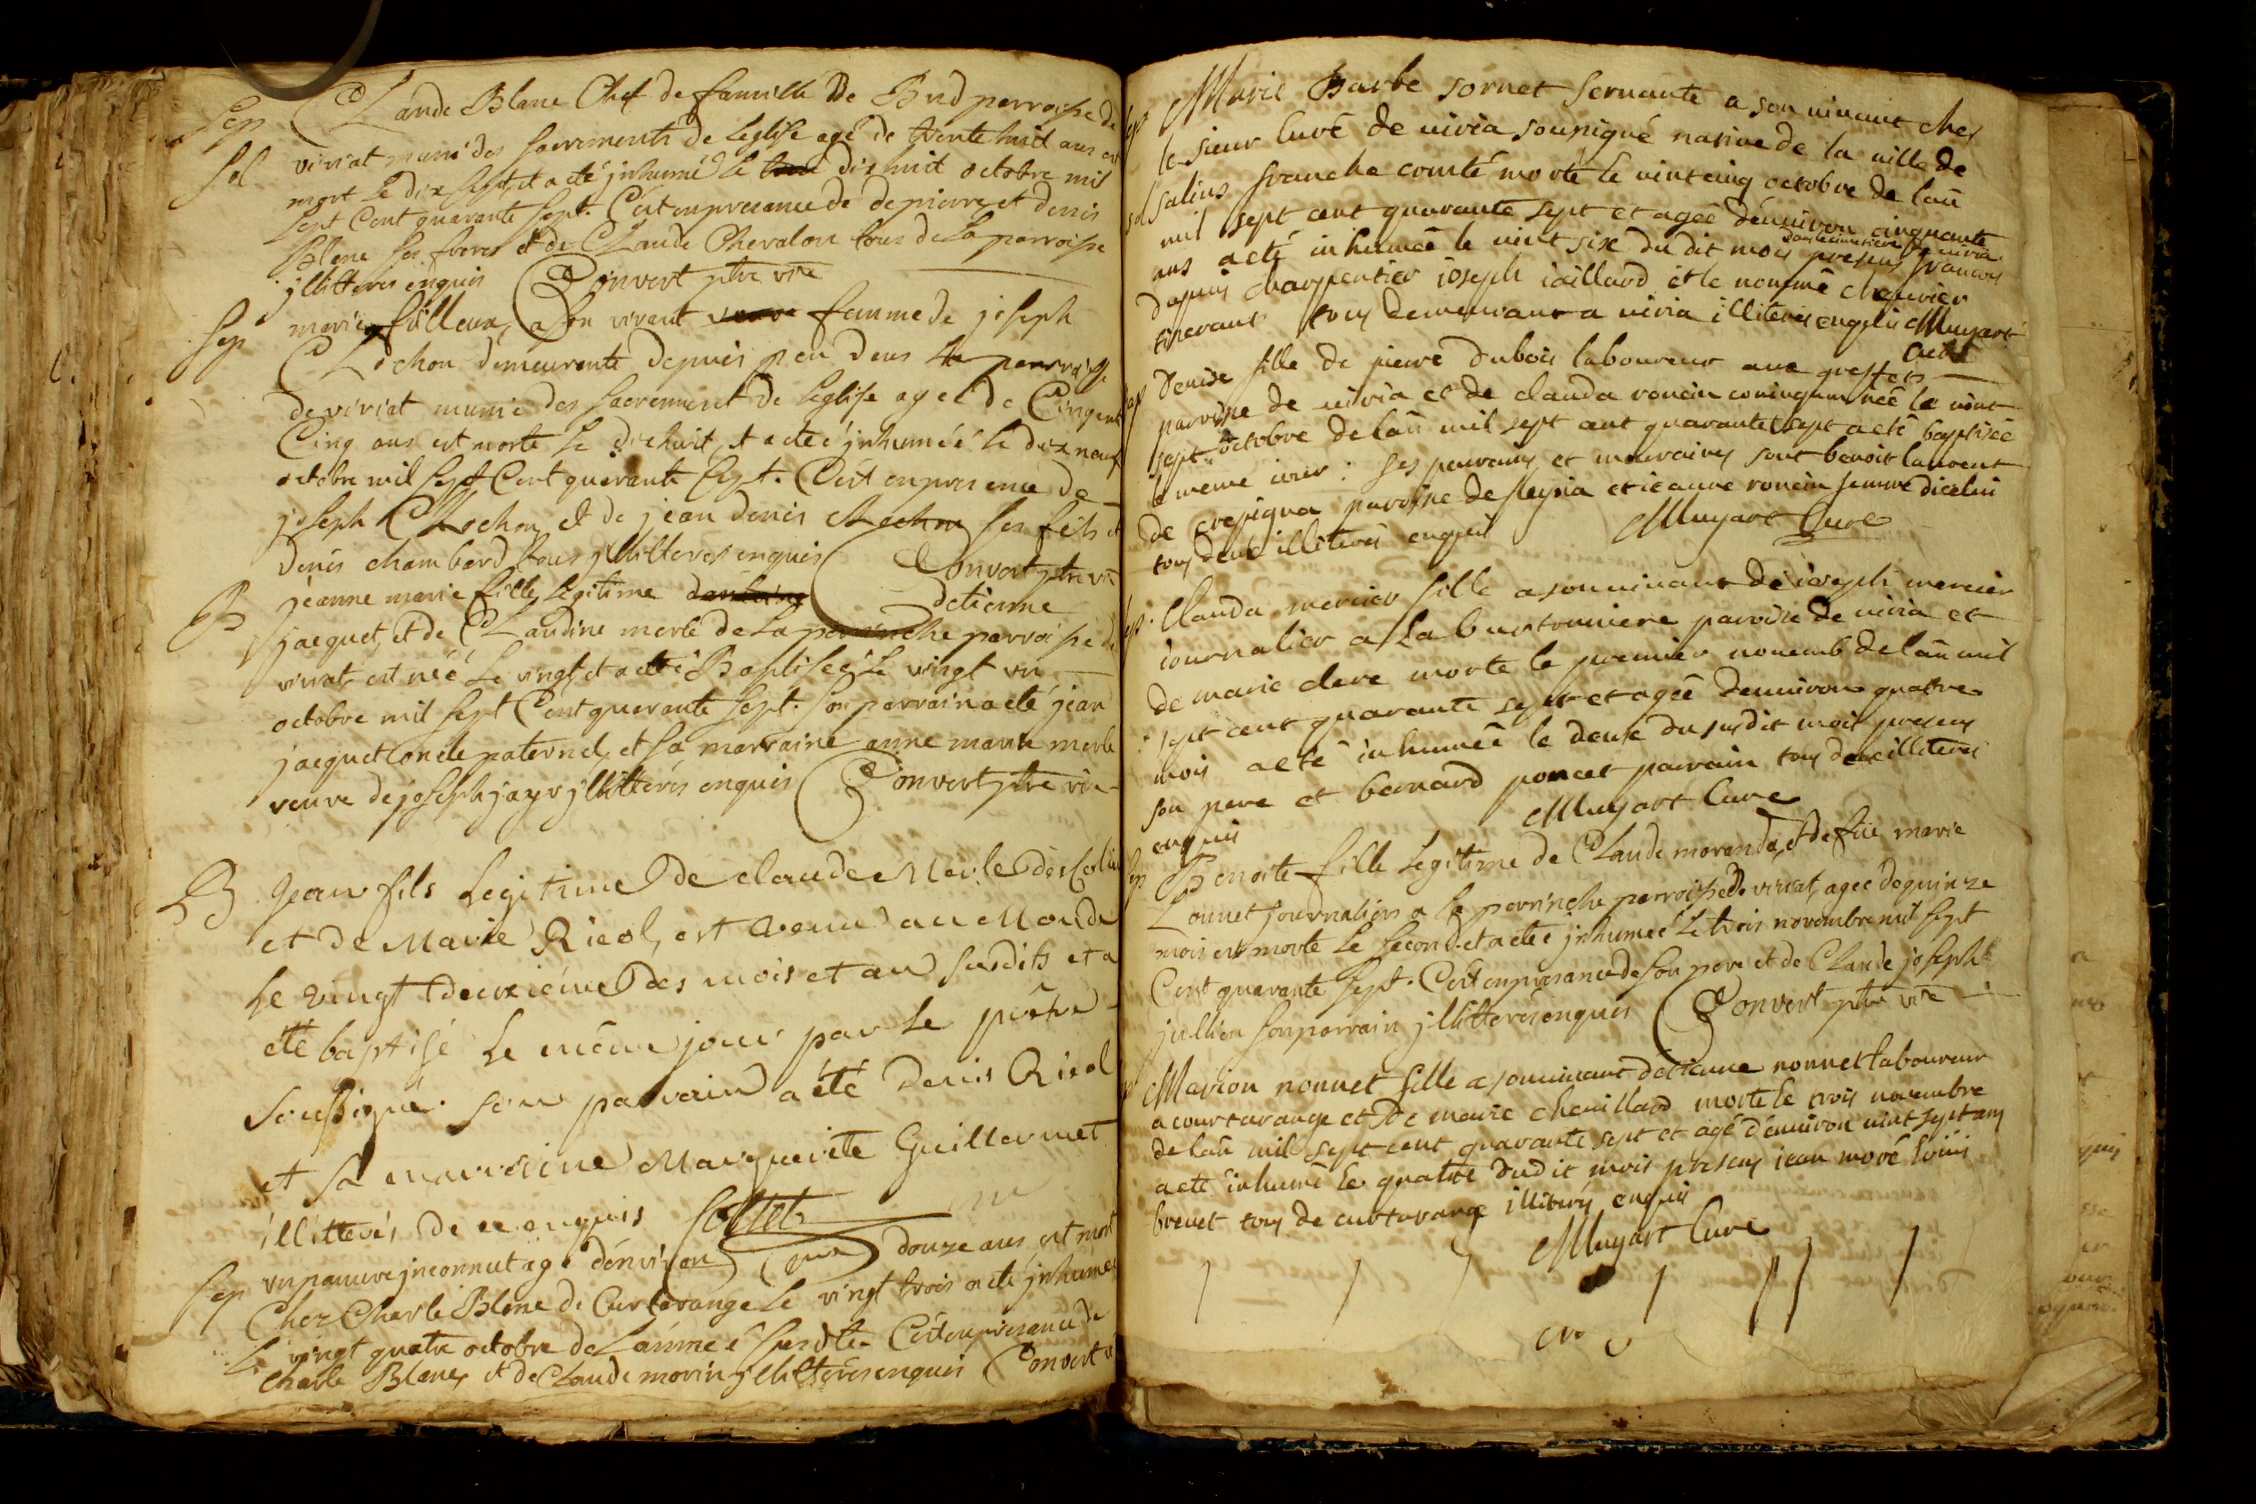 Sep Claude Blanc Chef de famille De Bud perroisse de
Sol viriat muni des sacrements de Leglise agé de trente huit ans est
mort Le dix sept, et a eté jnhumé Le dix huit octobre mil
sept Cent quarante sept. C'est en presance de de pierre et denis
Blanc ses freres et de Claude Chevalon tous de La perroisse
jllitteres enquis Convert ptre vire
Sep marie a son vivant femme de joseph
Clochon demeurante depuis peu dens La perroisse
de viriat munie des sacrement de Leglise agee de Cinquante
Cinq ans est morte Le dixhuit, et a eteé jnhumeé Le dix neuf
octobre mil sept Cent quarante sept. C'est en presence de
joseph Clochon et de jean denis Clochon ses fils et
denis chambard tous jllitteres enquis Convert ptre vire
B jeanne marie fille Legitime detienne
jacquet, et de Claudine merle de La perrinche perroisse de
viriat est néé Le vingt, et a eté Baptiseé Le vingt un
octobre mil sept Cent quarante sept. son parrain a eté jean
jacquet oncle paternel, et sa marraine anne marie merle
veuve de joseph jayr jllitterés enquis Convert ptre vire
B Jean fils Legitime de claude Merle des
et de Marie Ricol, est venu au Monde
Le vingt deuxiéme des mois et an susdits et a
eté baptisé Le même jour par Le prêtre
soussigné. son parrain a été denis Ricol
et sa marraine Marguerite Guillermet
illitterés de ce enquis
Sep un pauvre jnconnut agé d'environ douze ans est mort
Chez Charle Blanc de Curtarange Le vingt trois a eté jnhumé
Le vingt quatre octobre de Lannéé susdte. C'est en presance de
Charle Blanc, et de Claude morin jllitterés enquis Convert
Marie Barbe sornet servante a son vivant ches
le sieur Curé de viria sousigné native de la ville de
sol salins franche comté morte le vint cinq octobre de lañ
mil sept cent quarante sept et ageé d'environ cinquante
ans a eté inhumeé le vint six du dit mois dans le cimetiere de viria presens francois
dupuis charpentier ioseph iaillard et le nommé chevrier
tisserant tous demeurans a viria illiteres enquis Muyart
Curé
Denise fille de pierre dubois laboureur aux greffets
paroisse de viria et de clauda roncin coniugum neé le vint
sept octobre de lañ mil sept cent quarante sept a eté baptiseé
le meme iour : ses parrains et marraines sont benoit laurent
de crepigna paroisse de ieanne roncin femme dicelui
tous deux illiterés enquis Muyart Curé
Clauda mercier fille a son vivant de ioseph mercier
iournalier a la paroisse de viria et
de marie clere morte le premier novemb de lañ mil
sept cent quarante sept et ageé denviron quatre
mois a eté inhumeé le deux du susdit mois presens
son pere et bernard poncet parrain tous deux illiterés
enquis Muyart Curé
Benoite fille Legitime de Claude morandat, et de füe marie
Lounet journaliers a La perrinche perroisse de viriat, ageé de quinze
mois est morte Le second, et a eteé jnhumeé Le trois novembre mil sept
Cent quarante sept. C'est en presance de son pere et de Claude joseph
jullien son parrain jllitterés enquis Convert ptre vire
Marion nonnet fille a son vivant détienne nonnet laboureur
a courtarange et de marie chevillard morte le trois novembre
de lañ mil sept cent quarante sept et agé d'environ vint sept ans
a eté inhumé le quatre dudit mois presens iean moré
brevet tous de curtarange illiterés enquis
Muyart Curé